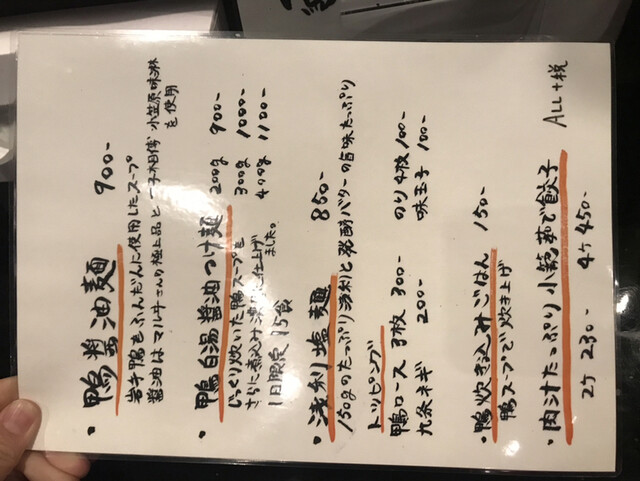 ・鴨醤油麺 900-
岩手鴨をふんだんに使用したスープ
醤油はマルナさんの極上品と一子相傳 小笠原味淋を使用
・鴨白湯醤油つけ麺 200g 900-
300g 1000-
400g 1100-
じっくり炊いた鴨スープを
さらに煮込み 仕上げました。
1日限定15食
・浅利塩麺 850-
150gのたっぷり浅利と発酵バターの旨味たっぷり
トッピング
鴨ロース3枚 300- のり4枚 100-
九条ネギ 200- 味玉子 100-
・鴨炊き込みごはん 150-
鴨スープで炊き上げ
・肉汁たっぷり小籠茹で餃子
2ケ 230- 4ケ 450-
ALL+税